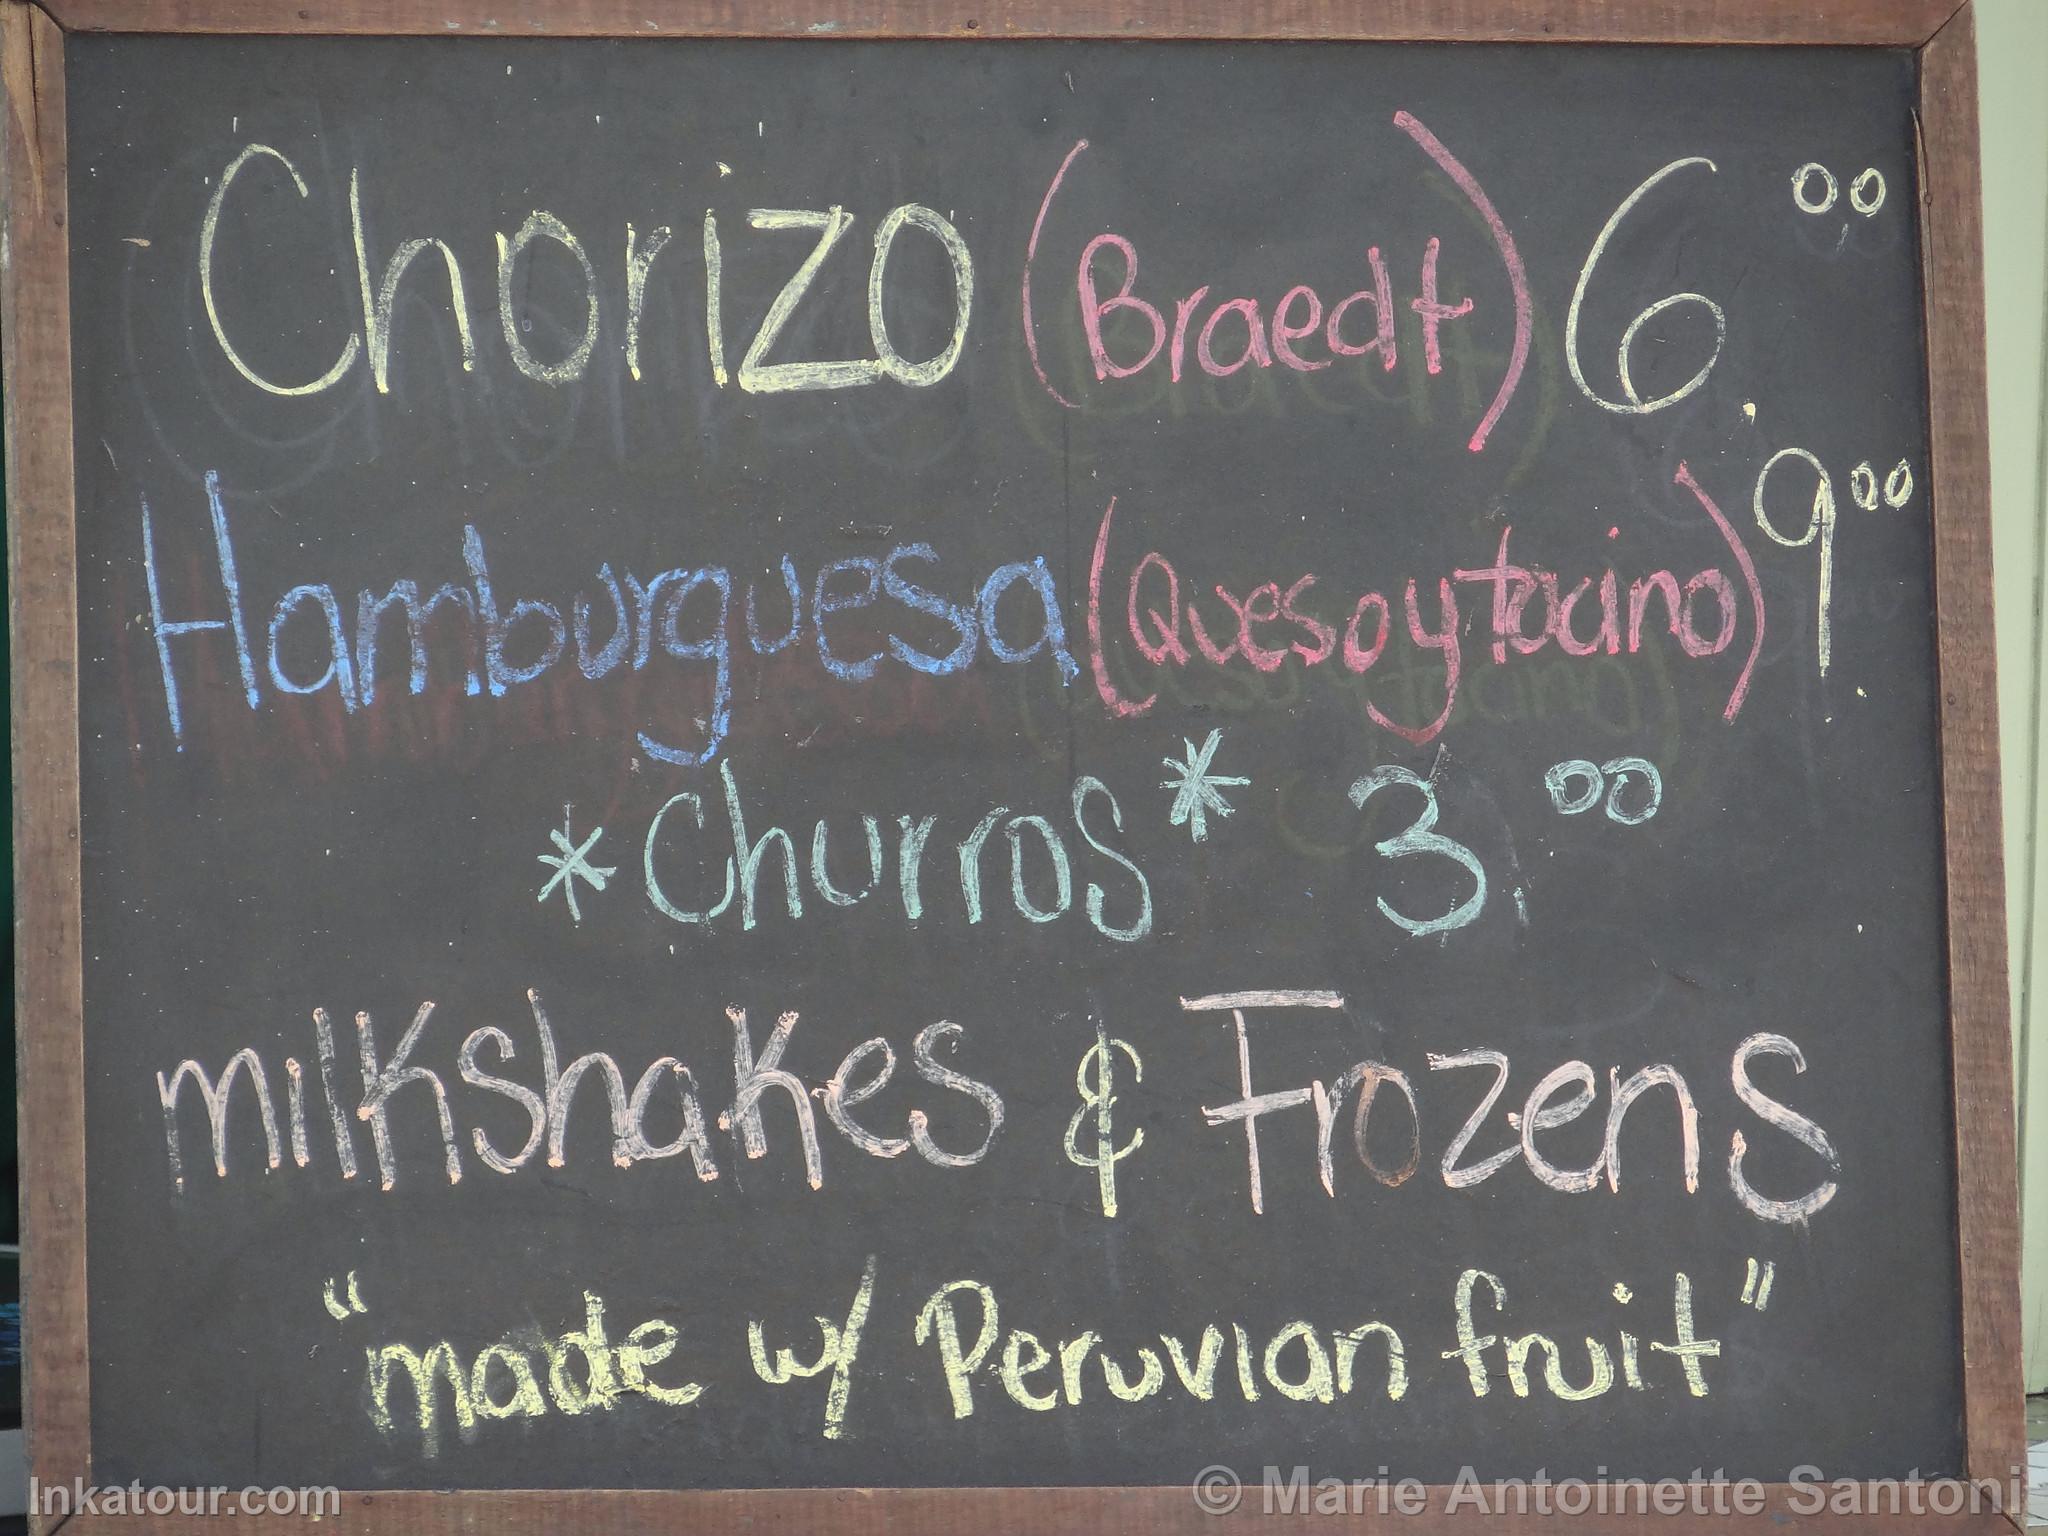 Chorizo (Braedt) 6.00
Hamburguesa (Queso y tocino) 9.00
*Churros* 3.00
milkshakes & Frozens
"made w/ Peruvian fruit"
Inkatour.com
© Marie Antoinette Santoni